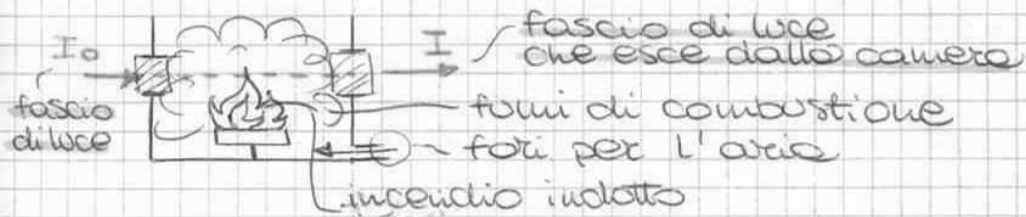 I₀
fascio
di luce
I
fascio di luce
che esce dalla camera
fumi di combustione
fori per l'aria
incendio indotto